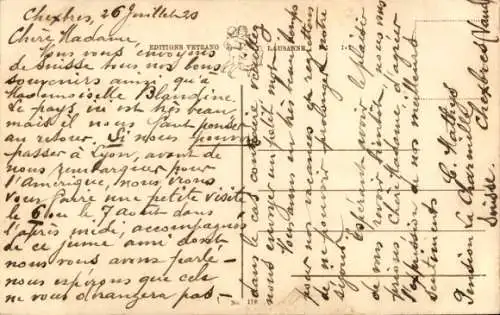 Chexbres, 26 Juillet 20
Chère Madame,
Nous vous envoyons
de Suisse tous nos bons
souvenirs ainsi qu'à
Mademoiselle Blandine.
Le pays, ici est très beau
mais il nous faut penser
au retour. Si nous pouvons
passer à Lyon, avant de
nous rembarquer pour
l'Amérique, nous irons
vous faire une petite visite
le 6 ou le 7 août dans
l'après midi, accompagnés
de ce jeune ami dont
nous vous avons parlé
nous espérons que cela
ne vous dérangera pas
EDITIONS VETRANO LAUSANNE
No. 119
dans le cas contraire veuillez
nous envoyer un petit mot
Nous avons eu très beau temps
pour nos vacances en
de ne pouvoir prolonger notre
séjour.
Espérant avoir le plaisir
de vous revoir bientôt, nous vous
prions, Chère Madame, d'agréer
l'expression de nos meilleurs
sentiments
C. Mathys
Pension La Charmille
Chexbres (Vaud)
Suisse